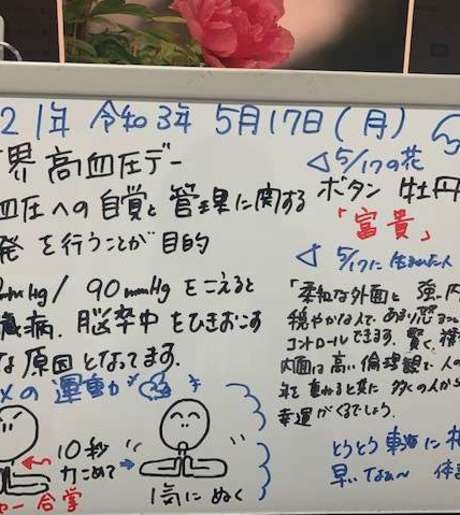 21年 令和3年 5月17日(月)
界高血圧デー
血圧への自覚と管理に関する
発を行うことが目的
mmHg/90mmHgをこえると
臓病、脳卒中をひきおこす
な原因となってます。
の運動
10秒
力こめて
合掌
1気にぬく
◁5/17の花
ボタン 牡丹
「富貴」
◁5/17に生まれた人
「柔和な外面と強い内
穏やかな人で、あまり怒
コントロールできます。賢く、
内面は高い倫理観で人の
を重ねると共に多くの人から
幸運がくるでしょう。
とうとう東海に
早いなぁ〜